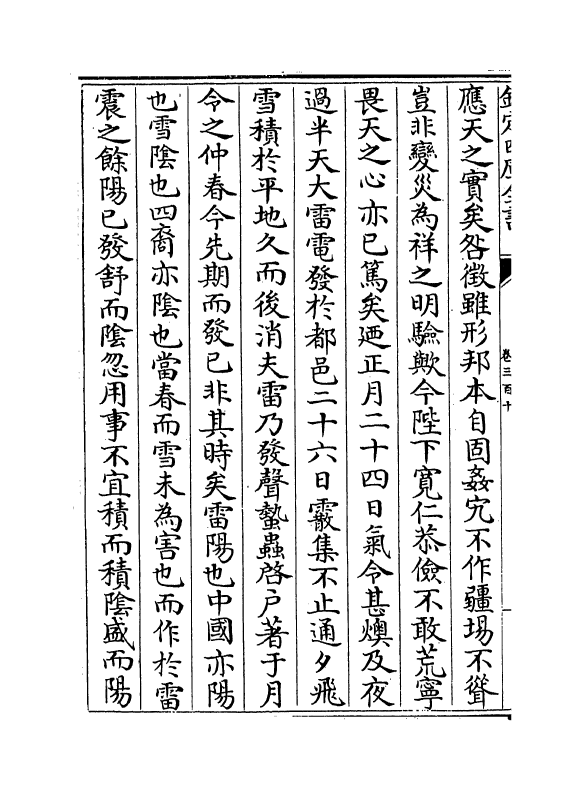 欽定四庫全書
卷三百十
應天之實矣咎徵雖形邦本自固姦宄不作疆場不聳
豈非變災為祥之明驗歟今陛下寛仁恭儉不敢荒寧
畏天之心亦已篤矣廼正月二十四日氣令甚燠及夜
過半天大雷電發於都邑二十六日霰集不止通夕飛
雪積於平地久而後消夫雷乃發聲蟄蟲啓户著于月
令之仲春今先期而發已非其時矣雷陽也中國亦陽
也雪陰也四裔亦陰也當春而雪未為害也而作於雷
震之餘陽已發舒而陰忽用事不宜積而積陰盛而陽